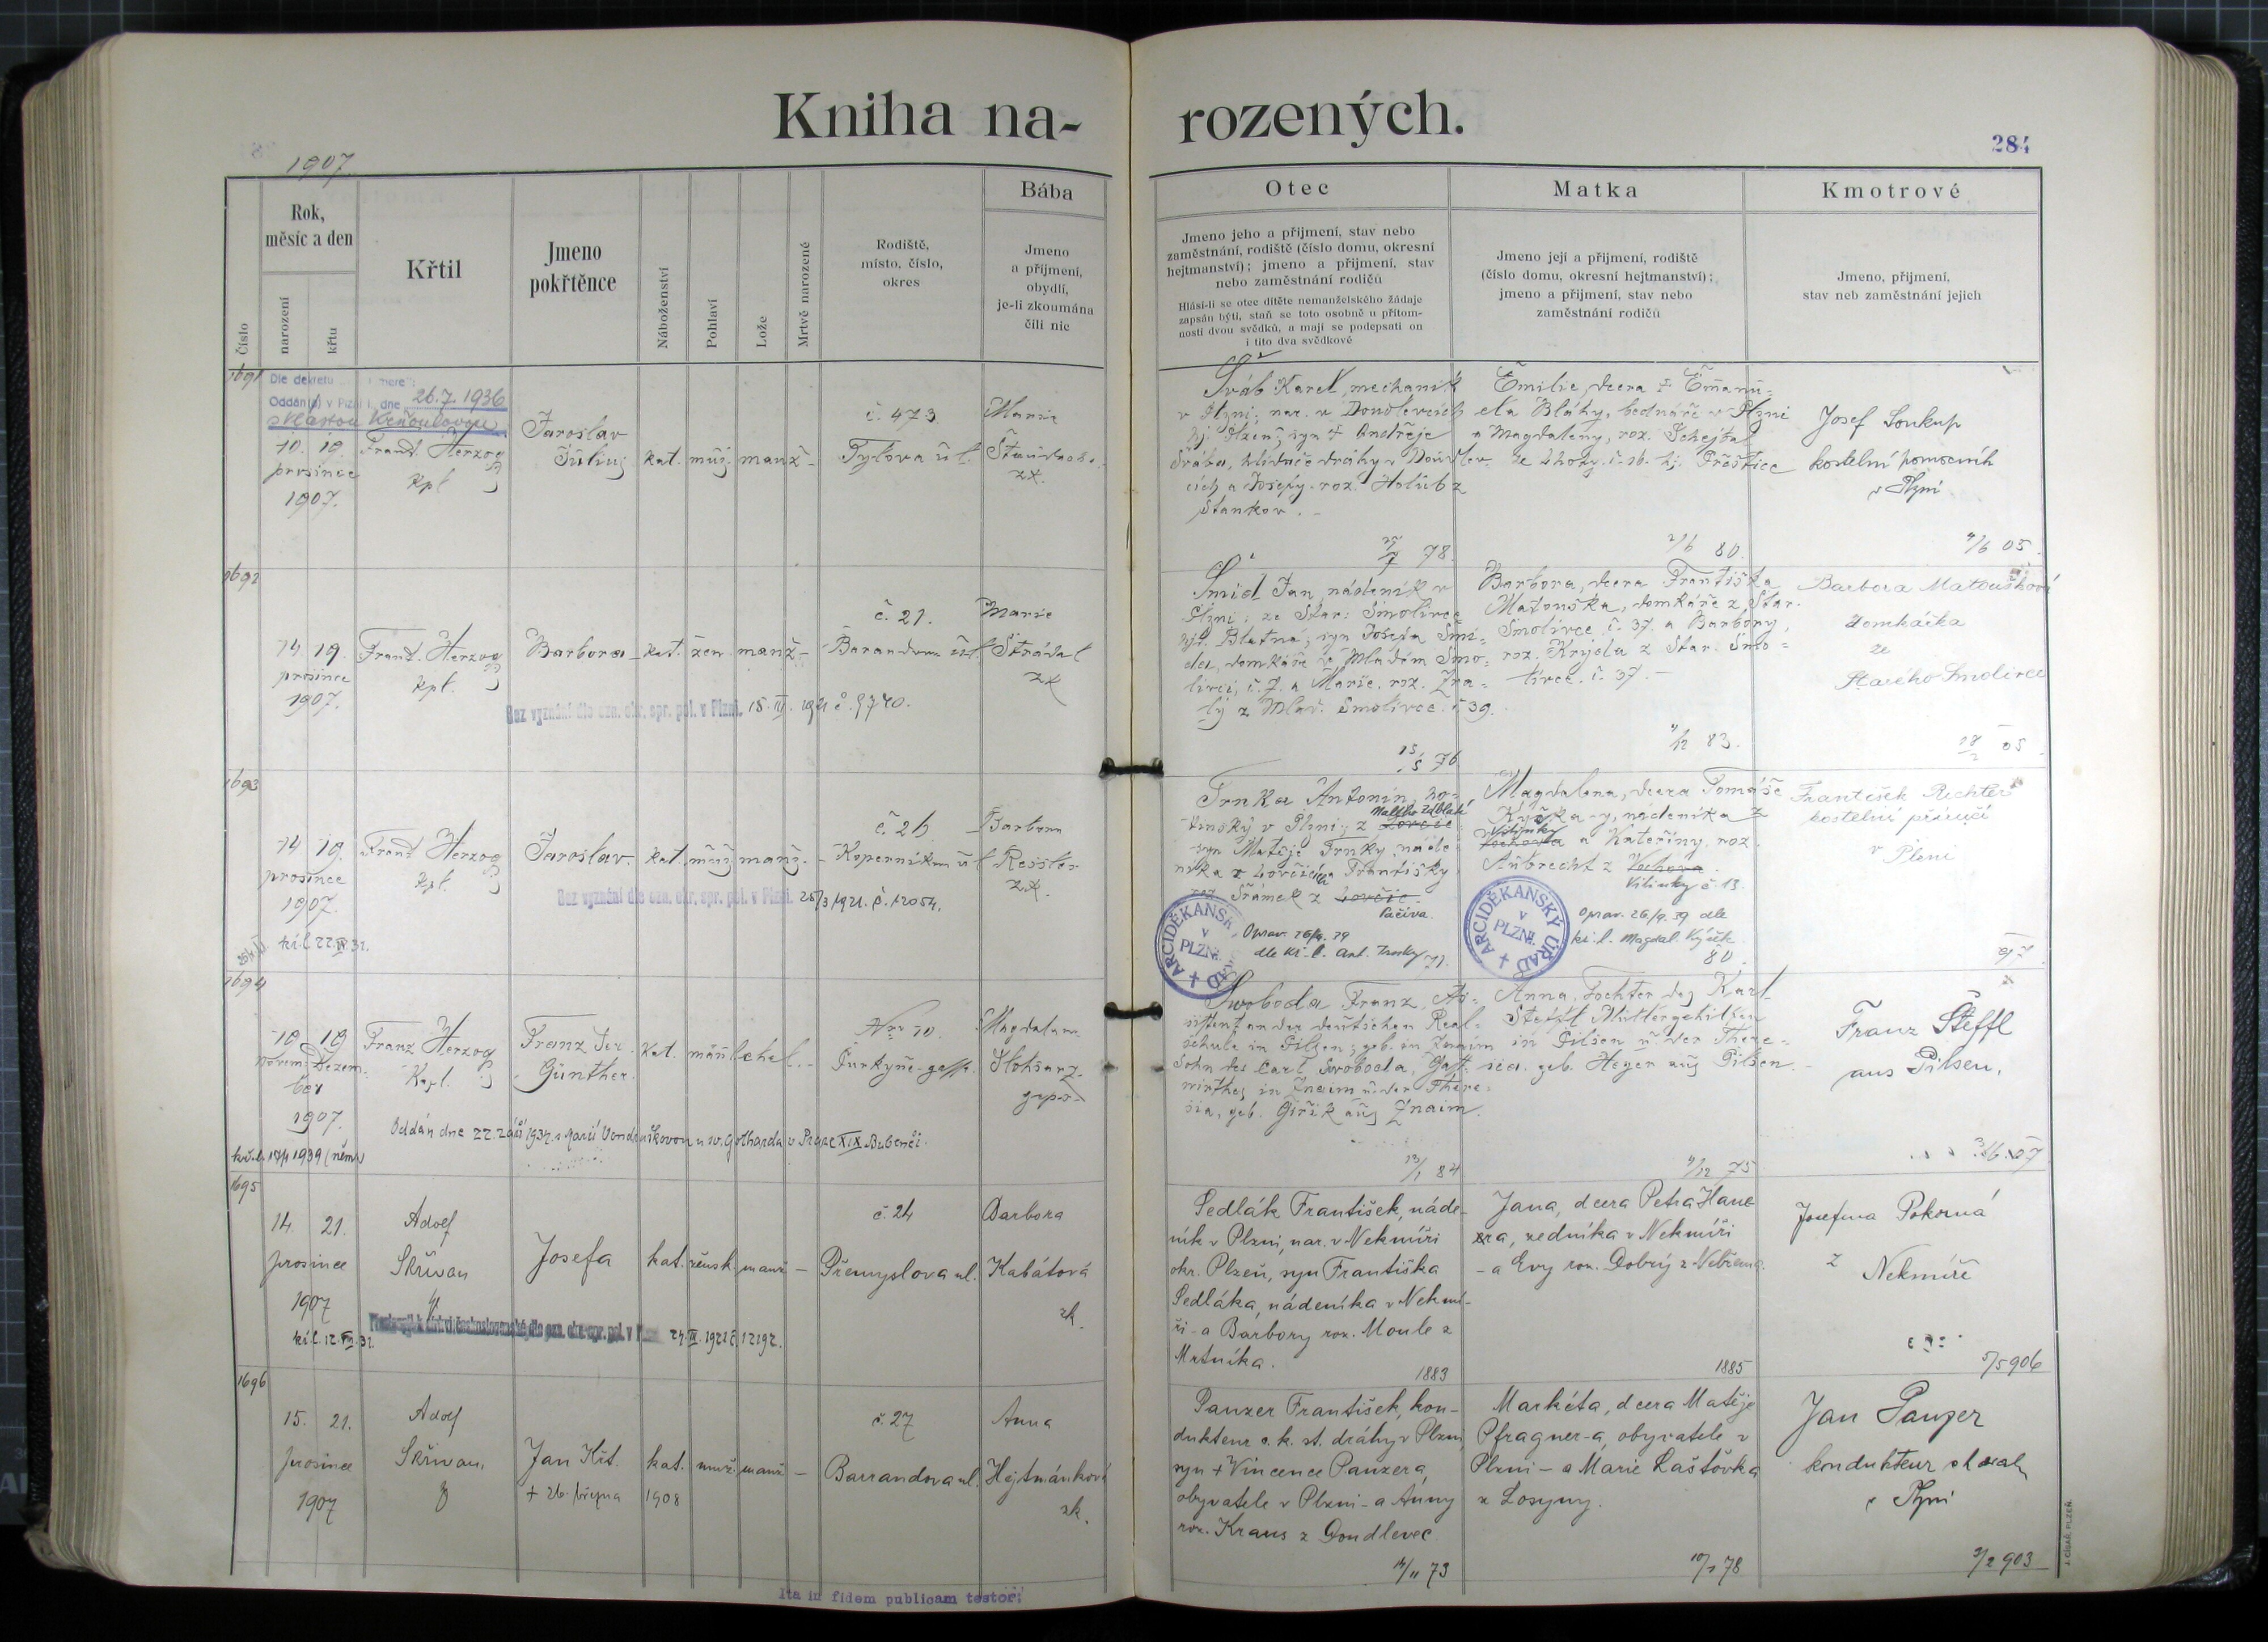 Kniha na-
rozených.
284
1907
Číslo
Rok,
měsíc a den
narození
křtu
Křtil
Jmeno
pokřtěnce
Náboženství
Pohlaví
Lože
Mrtvě narozené
Rodiště,
místo, číslo,
okres
Bába
Jmeno
a příjmení,
obydlí,
je-li zkoumána
čili nic
Otec
Jmeno jeho a příjmení, stav nebo
zaměstnání, rodiště (číslo domu, okresní
hejtmanství); jmeno a příjmení, stav
nebo zaměstnání rodičů
Hlásí-li se otec dítěte nemanželského žádaje
zapsán býti, staň se toto osobně u přítom-
nosti dvou svědků, a mají se podepsati on
i tito dva svědkové
Matka
Jmeno její a příjmení, rodiště
(číslo domu, okresní hejtmanství);
jmeno a příjmení, stav nebo
zaměstnání rodičů
Kmotrové
Jmeno, příjmení,
stav neb zaměstnání jejich
1691
Dle dekretu
Oddán(a) v Plzni dne 26.7.1936
10. 19.
prosince
1907.
Frant. Herzog
kpl.
Jaroslav
Július
kat. muž. manž -
č. 473.
Tylova úl.
Marie
zk.
Šváb Karel, mechanik
v Plzni, nar. v Doudlevcích
hj. Plzeň, syn † Ondřeje
Švába, hlídače dráhy v Doudlev-
cích a Josefy roz. Holub z
Stankov. -
78
Emilie, dcera † Emanu-
ela Bláhy, bednáře v Plzni
a Magdaleny, roz. Schejbal
ze Lhoty č. 16. hj. Přeštice
2/6 80.
Josef Soukup
kostelní pomocník
v Plzni
4/6 05.
1692
14 19.
prosince
1907.
Frant. Herzog
kpl.
Barbora
kat. žen. manž -
č. 21.
Barandova úl.
Marie
Strádal
zk
Bez vyznání dle ozn. okr. spr. pol. v Plzni. 15. III. 1921 č. 9740.
Šmíd Jan, nádeník v
Plzni; ze Star. Smolivce
hj. Blatná, syn Josefa Šmí-
da, domkáře v Mladém Smo-
livci, č. 7. a Marie, roz. Zra-
lý z Mlad. Smolivce č. 39.
76
Barbora, dcera Františka
Matouška, domkáře z Star.
Smolivce č. 37. a Barbory,
roz. Krejsla z Star. Smo-
livce. č. 37. -
83.
Barbora Matoušková
domkářka
ze
Starého Smolivce
05
1693
14 19.
prosince
1907.
kř. l. 22. IV 32.
Frant. Herzog
kpl.
Jaroslav.
kat. muž. manž. -
č. 26
Koperníkova úl
Barbora
Ressler
zk.
Bez vyznání dle ozn. okr. spr. pol. v Plzni. 25/3 1921. č. 12054.
Trnka Antonín, ho-
Malého Zdblatí
stinský v Plzni; z Lovčic
syn Matěje Trnky, náde-
níka z Lovčic a Františky
roz. Šrámek z Lovčic.
Pačiva
Oprav. 26/9. 39
dle kř. l. Ant. Trnky
71.
Magdalena, dcera Tomáše
Kýčka-y, nádeníka z
Vitinky
Vochova a Kateřiny, roz.
Aubrecht z Vochova
Vitinky č. 13.
Oprav. 26/9. 39 dle
kř. l. Magdal. Kýček
80
ARCIDĚKANSKÝ ÚŘAD
v
PLZNI.
ARCIDĚKANSKÝ ÚŘAD
v
PLZNI.
František Richter
kostelní příručí
v Plzni
1694
10 19
Novem- Dezem-
ber
1907.
kř. l. 17/1 1939 (něm.)
Franz Herzog
Kapl.
Franz Ser.
Günther.
kat. männl. ehel. -
Nro 10.
Purkyňe-gasse
Magdalena
gepr.
Oddán dne 22. září 1934 s Marií Vondruškovou u sv. Gotharda v Praze XIX Bubenči.
Swoboda Franz, As-
sistent an der deutschen Real-
schule in Pilsen; geb. in Znaim
Sohn des Carl Swoboda, Gast-
wirthes in Znaim u. der There-
sia, geb. Giřik aus Znaim.
13/1 84
Anna, Tochter des Karl
Steffl Müllergehilfen
in Pilsen u. der There-
sia geb. Heyer aus Pilsen. -
9/12 75
Franz Steffl
aus Pilsen,
07
1695
14 21.
prosince
1907
kř. l. 12. VII. 32.
Adolf
Skřivan
Josefa
kat. žensk. manž. -
č. 24
Přemyslova ul.
Barbora
Kabátová
zk.
24. III. 1921 č. 12192.
Sedlák František, náde-
ník v Plzni, nar. v Nekmíři
okr. Plzeň, syn Františka
Sedláka, nádeníka v Nekmí-
ři - a Barbory roz. Moule z
Mrtníka.
1883
Jana, dcera Petra Haue-
ra, zedníka v Nekmíři
- a Evy roz. Dobrý z Nebřema.
1885
Josefina Pokorná
z
Nekmíře
5/5 906
1696
15. 21.
prosince
1907
Adolf
Skřivan,
Jan Křt.
† 26. března 1908
kat. muž. manž. -
č. 27
Barrandova ul.
Anna
Hejtmánková
zk.
Panzer František, kon-
dukteur c. k. st. dráhy v Plzni,
syn † Vincence Panzera,
obyvatele v Plzni - a Anny
roz. Kraus z Doudlevec
14/11 73
Markéta, dcera Matěje
Pfragner-a, obyvatele v
Plzni - a Marie Laštovka
z Losyny.
10/7 78
Jan Panzer
kondukteur
v Plzni
3/2 903
Ita in fidem publicam testor:
J. CÍSAŘ, PLZEŇ.